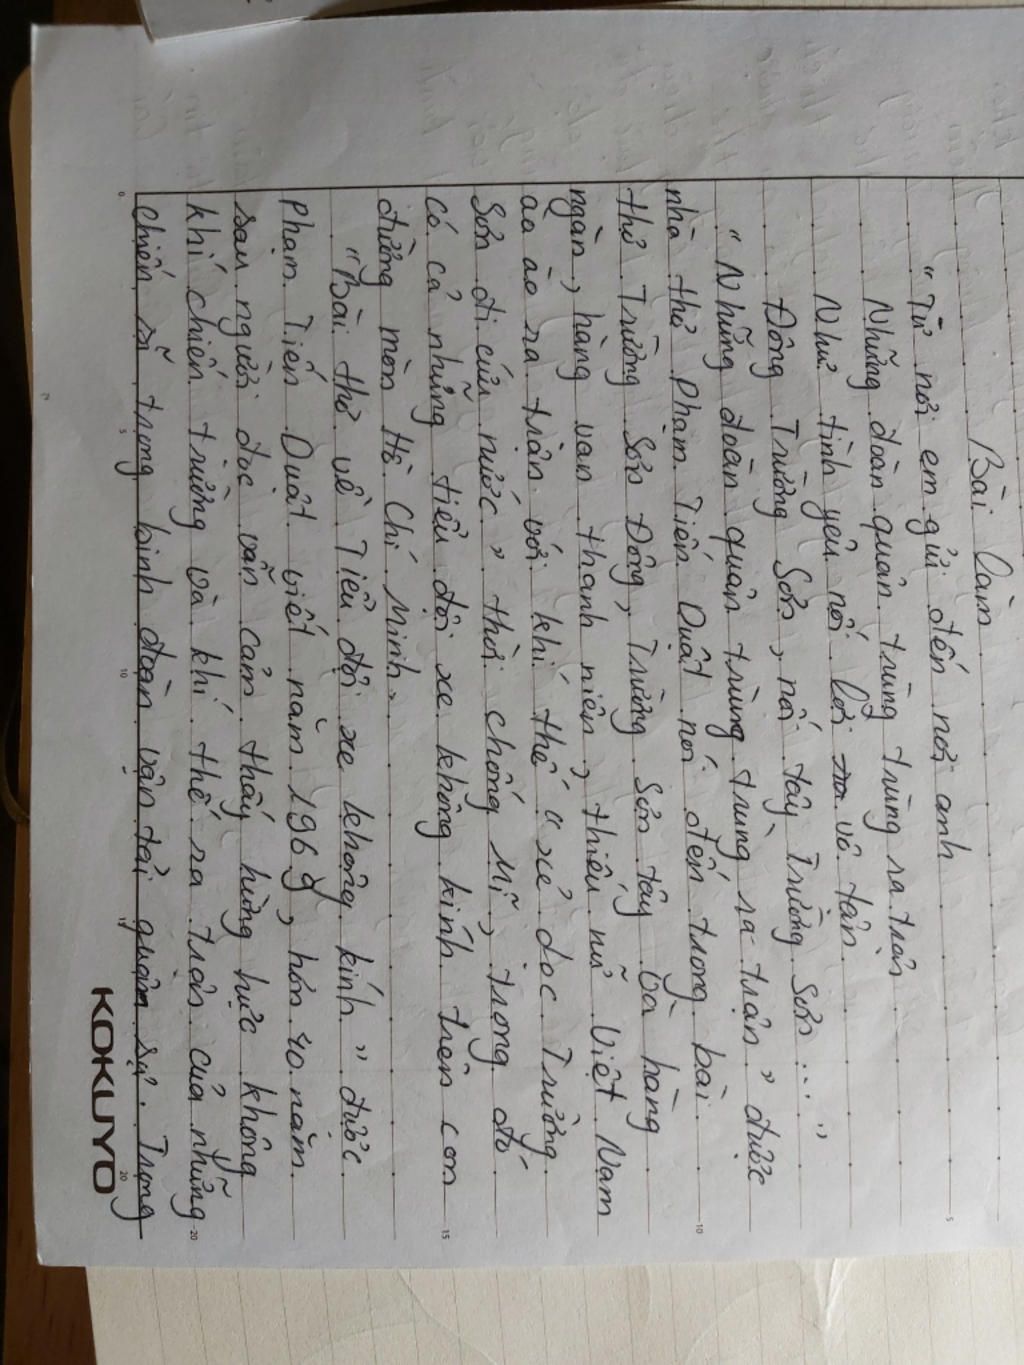 Bài làm
"Từ nơi em gửi đến nơi anh
Những đoàn quân trùng trùng ra trận
Như tình yêu nối lời vô tận
Đông Trường Sơn, nối tây Trường Sơn..."
"Những đoàn quân trùng trùng ra trận" được
nhà thơ Phạm Tiến Duật nói đến trong bài
thơ Trường Sơn Đông, Trường Sơn tây là hàng
ngàn, hàng vạn thanh niên, thiếu nữ Việt Nam
ào ào ra trận với khí thế "xẻ dọc Trường
Sơn đi cứu nước" thời chống Mĩ, trong đó
có cả những tiểu đội xe không kính trên con
đường mòn Hồ Chí Minh.
"Bài thơ về Tiểu đội xe không kính" được
Phạm Tiến Duật viết năm 1969, hơn 40 năm
sau người đọc vẫn cảm thấy hừng hực không
khí chiến trường và khí thế ra trận của những
chiến sĩ trong binh đoàn vận tải quân sự. Trong
KOKUYO